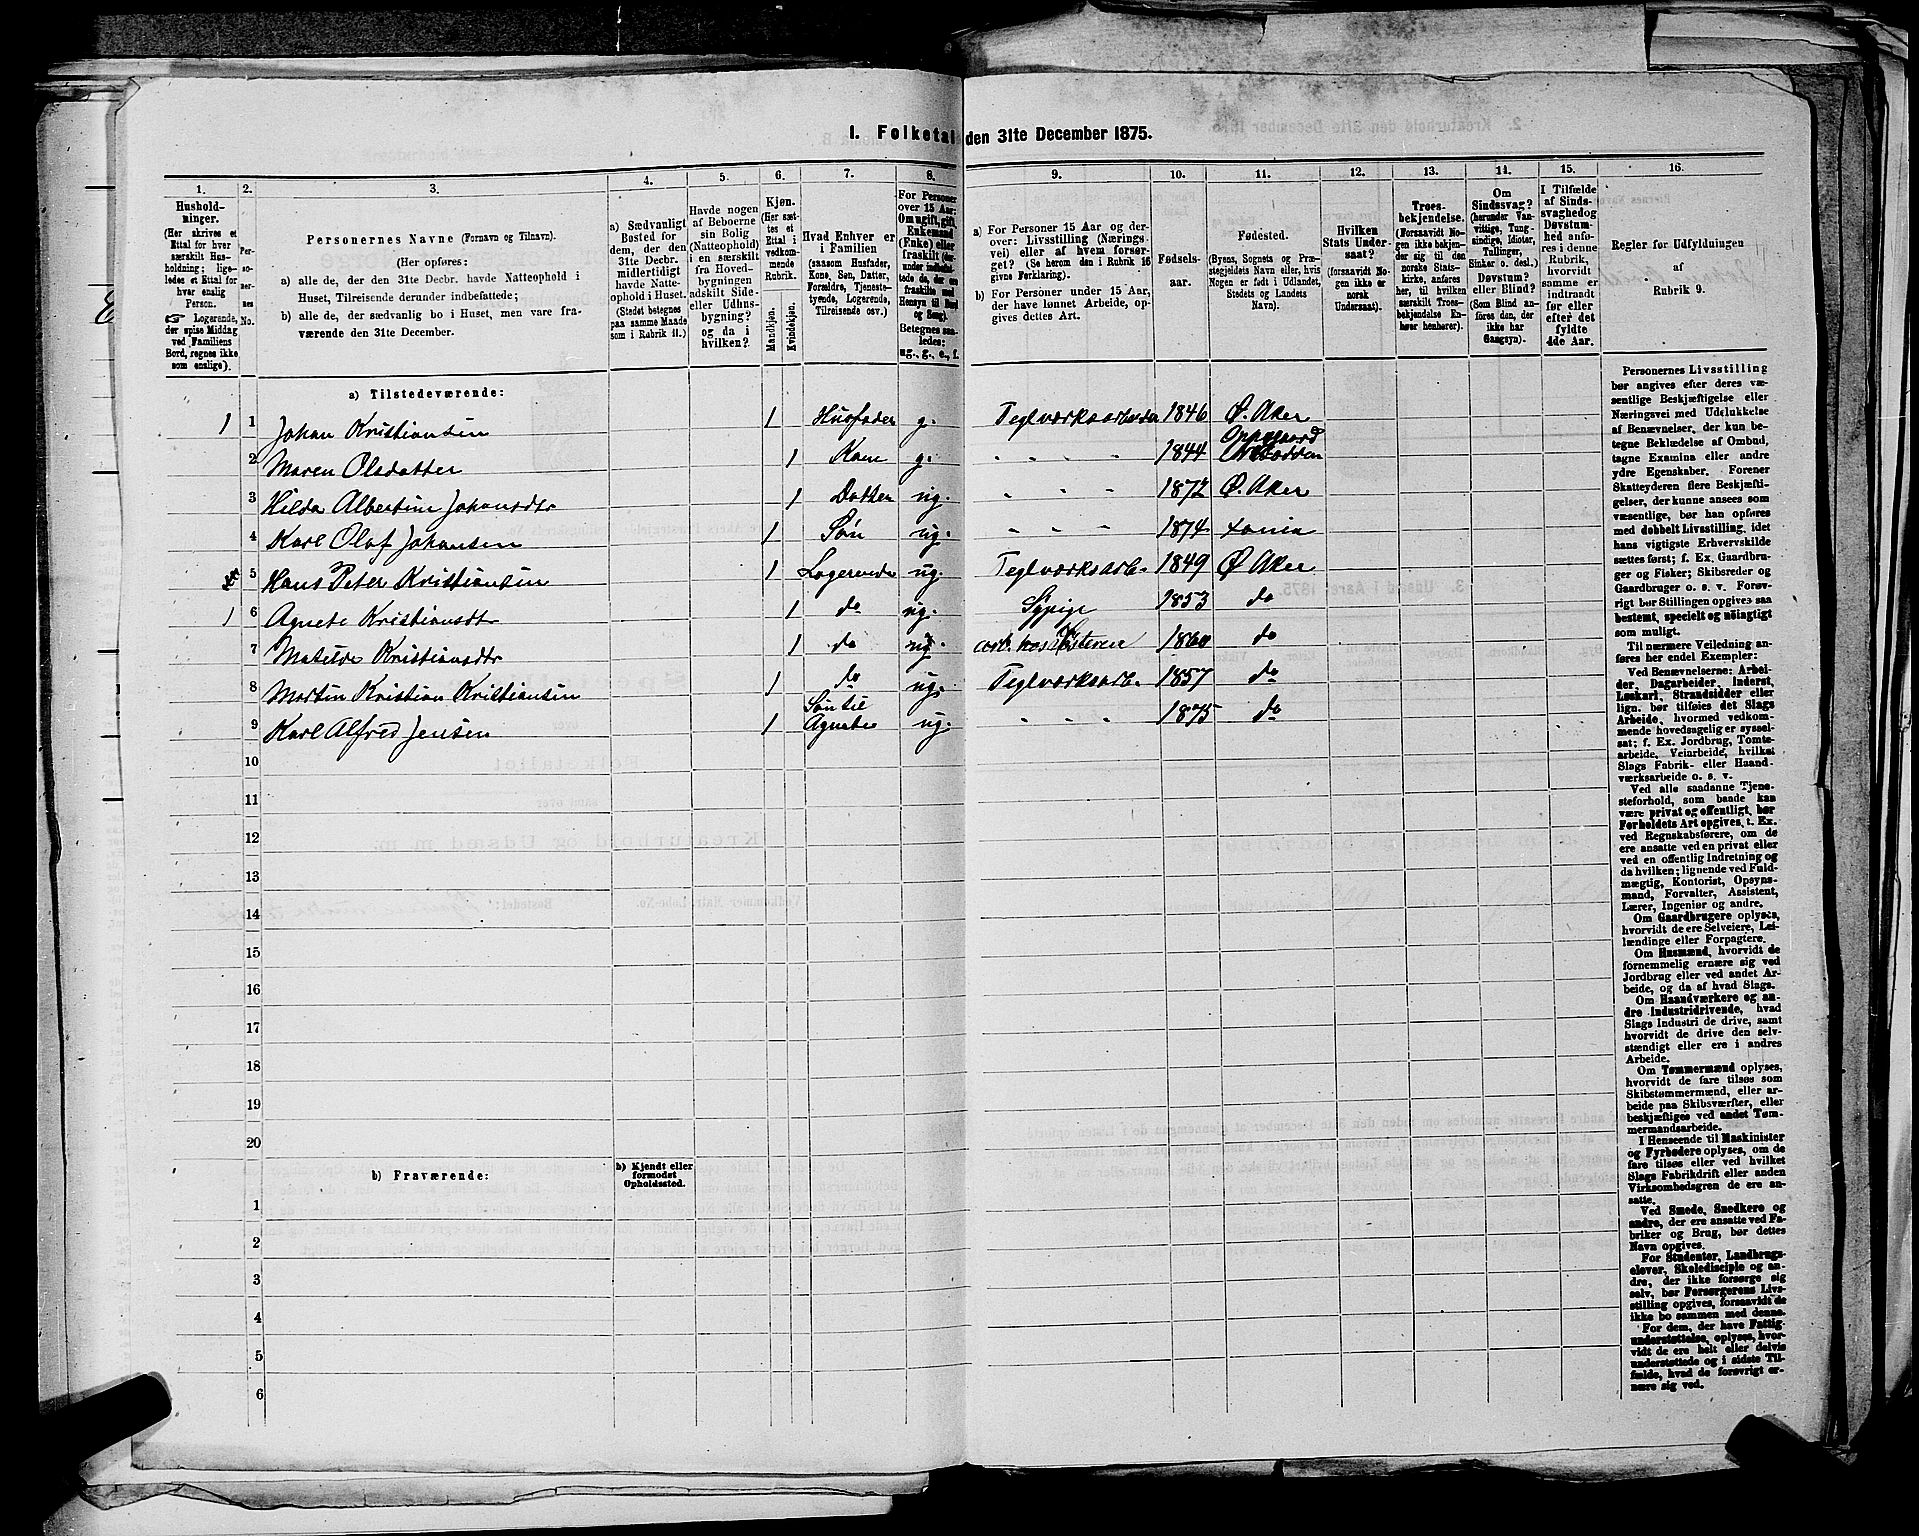 1. Folketal den 31te December 1875.
1. 2. 3. 4. 5. 6. 7. 8. 9. 10. 11. 12. 13. 14. 15. 16.
Hushold-
ninger.
(Her skrives et
Ettal for hver
særskilt Hus-
holdning; lige-
ledes et Ettal for
hver enslig
Person.
☞ Logerende,
der spise Middag
ved Familiens
Bord, regnes ikke
som enslige).
Per-
so-
ner-
nes
No.
Personernes Navne (Fornavn og Tilnavn).
(Her opføres:
a) alle de, der den 31te Decbr. havde Natteophold i
Huset, Tilreisende derunder indbefattede;
b) alle de, der sædvanlig bo i Huset, men vare fra-
værende den 31te December.
a) Sædvanligt
Bosted for
dem, der den
31te Decbr.
midlertidigt
havde Natte-
ophold i Huset.
(Stedet betegnes
paa samme Maade
som i Rubrik 11.)
Havde nogen
af Beboerne
sin Bolig
(Natteophold)
i en særskilt
fra Hoved-
bygningen
adskilt Side-
eller Udhus-
bygning?
og da i
hvilken?
Kjøn.
(Her sæt-
tes et
Ettal i
vedkom-
mende
Rubrik.
Mandkjøn.
Kvindekjøn.
Hvad Enhver er
i Familien
(saasom Husfader,
Kone, Søn, Datter,
Forældre, Tjeneste-
tyende, Logerende,
Tilreisende osv.)
For Personer
over 15 Aar:
Om ugift, gift,
Enkemand
(Enke) eller
fraskilt
Betegnes saa-
ledes:
ug., g., e., f.
a) For Personer 15 Aar og der-
over: Livsstilling (Nærings-
vei) eller af hvem forsør-
get? (Se herom den i Rubrik 16
givne Forklaring).
b) For Personer under 15 Aar,
der have lønnet Arbeide, op-
gives dettes Art.
Fødsels-
aar.
Fødested.
(Byens, Sognets og Præ-
stegjeldets Navn eller, hvis
Nogen er født i Udlandet,
Stedets og Landets
Navn).
Hvilken
Stats Under-
saat?
(forsaavidt No-
gen ikke er
norsk
Undersaat).
Troes-
bekjendelse.
(Forsaavidt No-
gen ikke bekjen-
der sig til den
norske Stats-
kirke, anføres
her, til hvilken
særskilt Troes-
bekjendelse En-
hver henhører).
Om
Sindssvag?
(herunder Van-
vittige, Tung-
sindige, Idioter,
Tullinger,
Sinker o. desl.)
Døvstum?
eller Blind?
(Som Blind an-
føres den, der
ikke har
Gangsyn).
I Tilfælde
af Sinds-
svaghed og
Døvstum-
hed anfø-
res i denne
Rubrik,
hvorvidt
samme er
indtraadt
før eller
efter det
fyldte
4de Aar.
Regler for Udfyldningen
af
Rubrik 9.
a) Tilstedeværende:
1 1 Johan Kristiansen 1 Husfader g. Teglværksarbeider 1846 Ø. Aker
2 Maren Olsdatter 1 Kone g. " " " 1844 Oppegaard
3 Hilda Albertine Johansdtr 1 Datter ug. " " " 1872 Ø. Aker
4 Karl Olaf Johansen 1 Søn ug. " " " 1874 Xania
5 Hans Peter Kristiansen 1 Logerende ug. Teglværksarb. 1849 Ø Aker
1 6 Agnete Kristiansdtr 1 do ug. Sypige 1853 do
7 Matilde Kristiansdtr 1 do ug. arb. hos Søsteren 1860 do
8 Martin Kristian Kristiansen 1 do ug. Teglværksarb. 1857 do
9 Karl Alfred Jensen 1 Søn til Agnete ug. " " " 1875 do
10
11
12
13
14
15
16
17
18
19
20
b) Fraværende:
b) Kjendt eller
formodet
Opholdssted.
1
2
3
4
5
6
Personernes Livsstilling
bør angives efter deres væ-
sentlige Beskjæftigelse eller
Næringsvei med Udelukkelse
af Benævnelser, der kun be-
tegne Beklædelse af Ombud,
tagne Examina eller andre
ydre Egenskaber. Forener
Skatteyderen flere Beskjæfti-
gelser, der kunne ansees som
væsentlige, bør han opføres
med dobbelt Livsstilling, idet
hans vigtigste Erhvervskilde
sættes først; f. Ex. Gaardbru-
ger og Fisker; Skibsreder og
Gaardbruger o. s. v. Forøv-
rigt bør Stillingen opgives saa
bestemt, specielt og nøiagtigt
som muligt.
Til nærmere Veiledning an-
føres her endel Exempler:
Ved Benævnelserne: Arbei-
der, Dagarbeider, Inderst,
Løskarl, Strandsidder eller
lign. bør tilføies det Slags
Arbeide, hvormed vedkom-
mende hovedsagelig er syssel-
sat; f. Ex. Jordbrug, Tomte-
arbeide, Veiarbeide, hvilket
Slags Fabrik- eller Haand-
værksarbeide o. s. v.
Ved alle saadanne Tjene-
steforhold, som baade kan
være privat og offentligt, bør
Forholdets Art opgives, t. Ex.
ved Regnskabsførere, om de
ere ansatte ved en privat eller
ved en offentlig Indretning og
da hvilken; lignende ved Fuld-
mægtig, Kontorist, Opsyns-
mand, Forvalter, Assistent,
Lærer, Ingeniør og andre.
Om Gaardbrugere oplyses,
hvorvidt de ere Selveiere, Lei-
lændinge eller Forpagtere.
Om Husmænd, hvorvidt de
fornemmelig ernære sig ved
Jordbrug eller ved andet Ar-
beide, og da af hvad Slags.
Om Haandværkere og an-
dre Industridrivende, hvad
Slags Industri de drive, samt
hvorvidt de drive den selv-
stændigt eller ere i andres
Arbeide.
Om Tømmermænd oplyses,
hvorvidt de fare tilsøs som
Skibstømmermænd, eller ar-
beide paa Skibsværfter, eller
beskjæftiges ved andet Tøm-
mermandsarbeide.
I Henseende til Maskinister
og Fyrbødere oplyses, om de
fare tilsøs eller ved hvilket
Slags Fabrikdrift eller anden
Virksomhedsgren de ere an-
satte.
Ved Smede, Snedkere og
andre, der ere ansatte ved Fa-
briker og Brug, bør dettes
Navn opgives.
For Studenter, Landbrugs-
elever, Skoledisciple og an-
dre, der ikke forsørge sig
selv, bør Forsørgerens Livs-
stilling opgives, forsaavidt de
ikke bo sammen med denne.
For dem, der have Fattig-
understøttelse, oplyses, hvor-
vidt de ere helt eller delvis
understøttede og i sidste Til-
fælde, hvad de forøvrigt er-
nære sig ved.